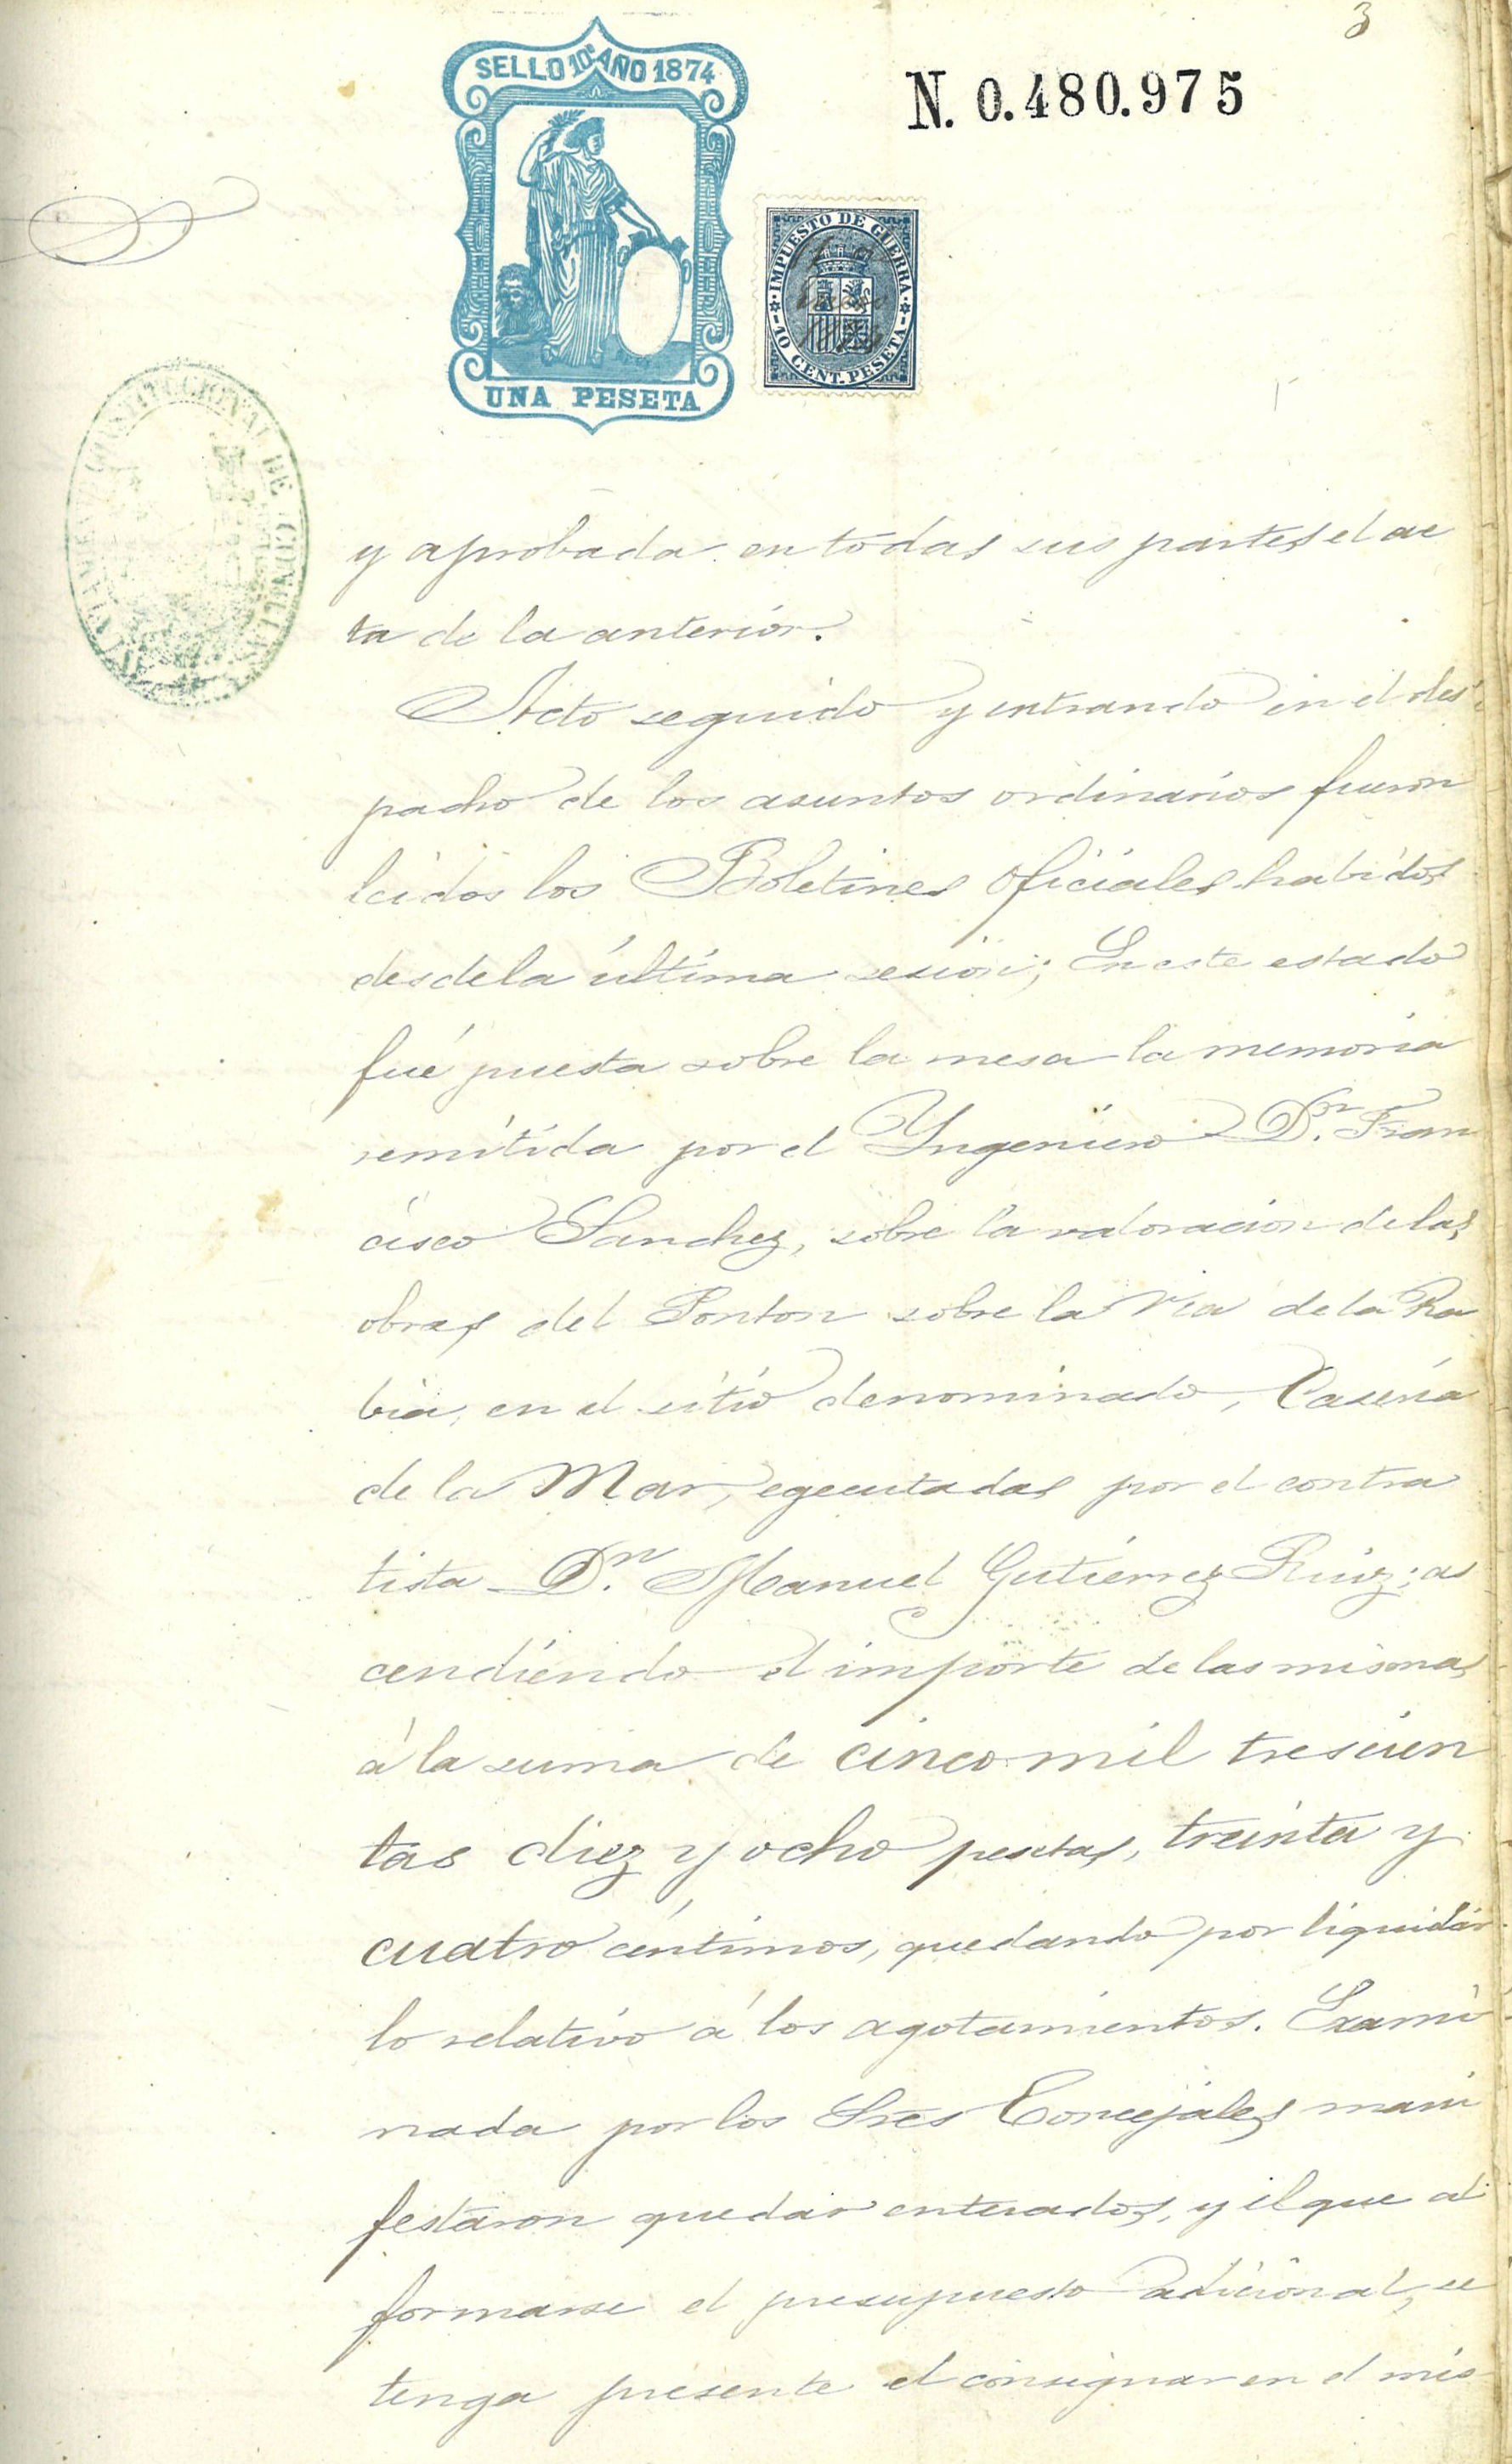 3
SELLO 10º AÑO 1874
N. 0.480.975
IMPUESTO DE GUERRA
10 CENT. PESETA
UNA PESETA
CONSTITUCIONAL DE COMILLAS
y aprobada en todas sus partes el ac
ta de la anterior.
Acto seguido y entrando en el des
pacho de los asuntos ordinarios fueron
leidos los Boletines oficiales habidos
desde la última sesion; En este estado
fué puesta sobre la mesa la memoria
remitida por el Yngeniero Dn. Fran
cisco Sanchez, sobre la valoracion de las
obras del Ponton sobre la Ria de la Ra
bia, en el sitio denominado, Caseria
de la Mar, egecutadas por el contra
tista Dn. Manuel Gutierrez Ruiz; as
cendiendo el importe de las mismas
á la suma de cinco mil trescien
tas diez y ocho pesetas, treinta y
cuatro centimos, quedando por liquidar
lo relativo á los agotamientos. Exami
nada por los Sres Concejales mani
festaron quedar enterados, y el que al
formarse el presupuesto adicional, se
tenga presente el consignar en el mis